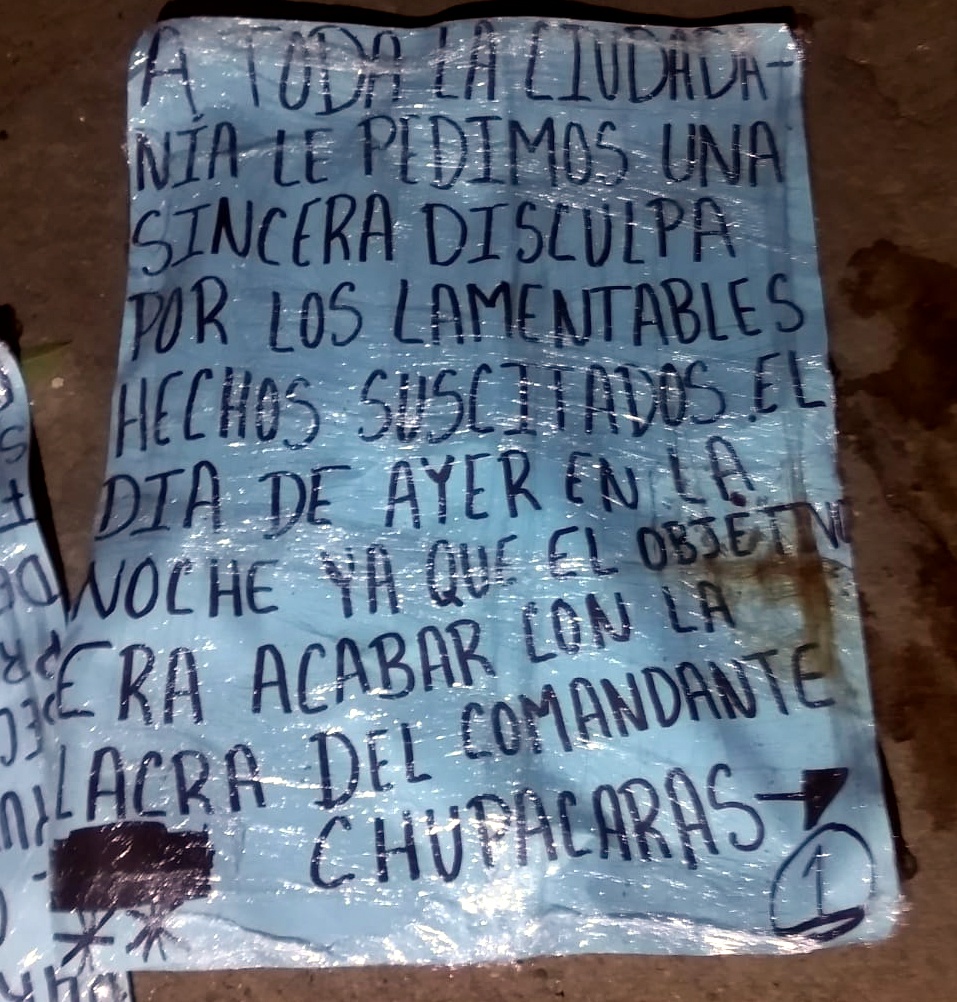 A TODA LA CIUDADA-
NÍA LE PEDIMOS UNA
SINCERA DISCULPA
POR LOS LAMENTABLES
HECHOS SUSCITADOS EL
DIA DE AYER EN LA
NOCHE YA QUE EL OBJETIVO
ERA ACABAR CON LA
LACRA DEL COMANDANTE
CHUPACARAS
1